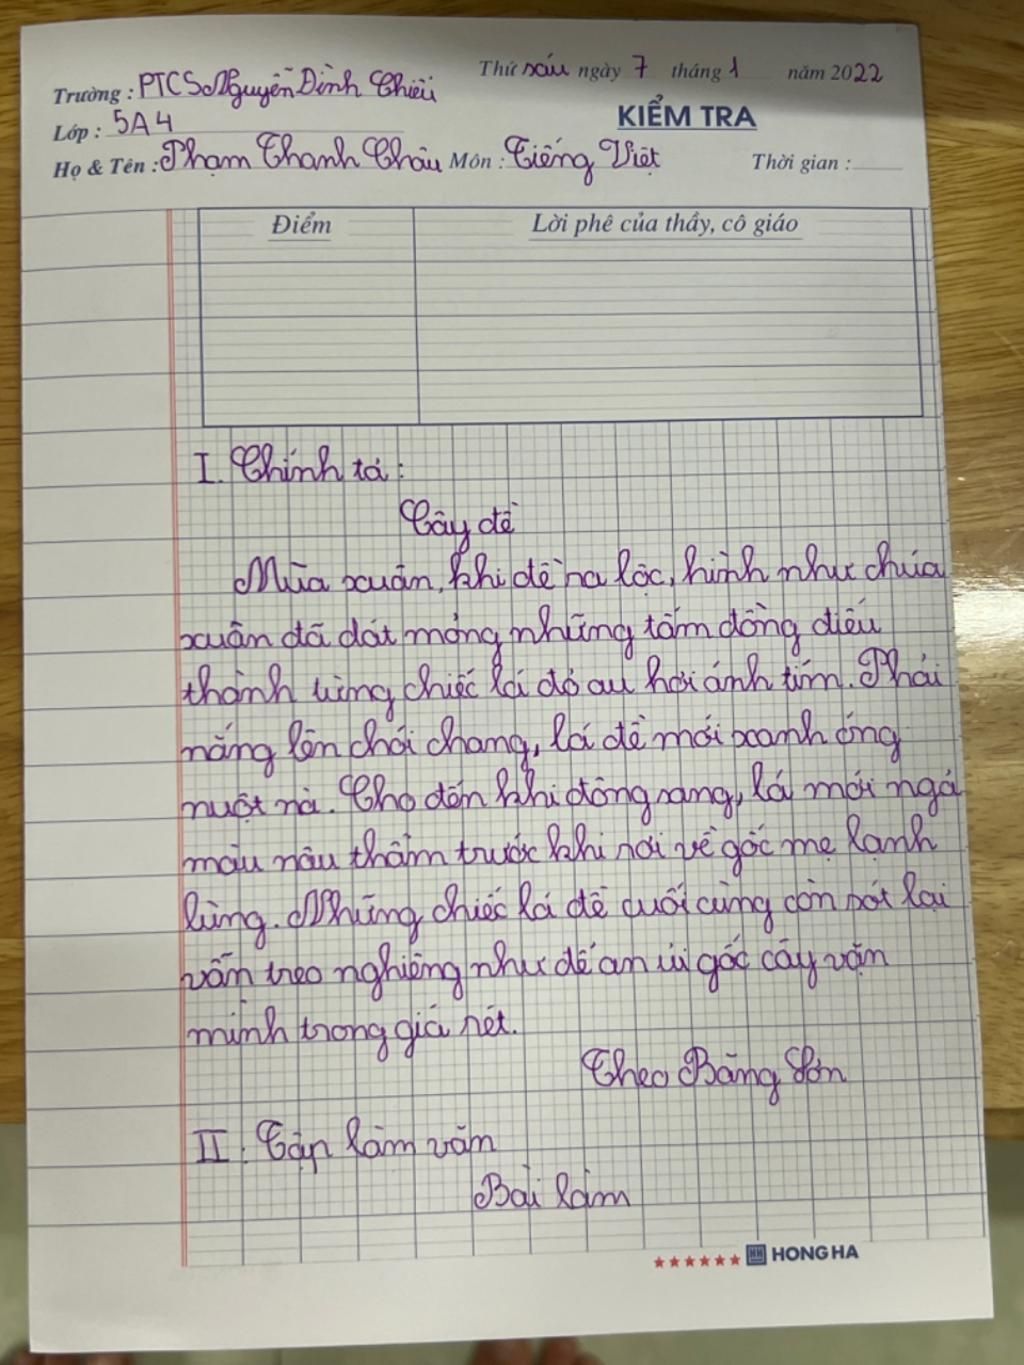 Thứ sáu ngày 7 tháng 1 năm 2022
Trường : PTCS Nguyễn Đình Chiểu
KIỂM TRA
Lớp : 5A4
Họ & Tên : Phạm Thanh Châu Môn : Tiếng Việt Thời gian :
Điểm Lời phê của thầy, cô giáo
I. Chính tả :
Cây đề
Mùa xuân, khi đề ra lộc, hình như chúa
xuân đã dát mỏng những tấm đồng điếu
thành từng chiếc lá đỏ au hơi ánh tím. Phải
nắng lên chói chang, lá đề mới xanh óng
nuột nà. Cho đến khi đông sang, lá mới ngả
màu nâu thẫm trước khi rơi về gốc mẹ lạnh
lùng. Những chiếc lá đề cuối cùng còn sót lại
vẫn treo nghiêng như để an ủi gốc cây vặn
mình trong giá rét.
Theo Băng Sơn
II. Tập làm văn
Bài làm
HONG HA